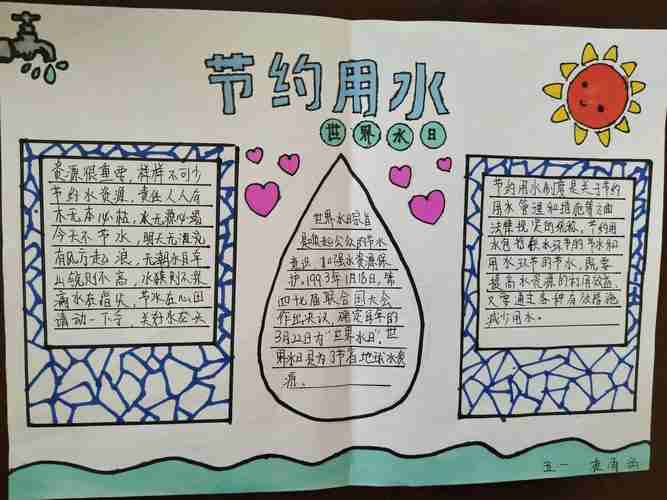 节约用水
世界水日
资源很重要，样样不可少
节约水资源，责任人人有
木无本必枯，水无源必竭
今天不节水，明天无滴泉
有风方起浪，无潮水自平
山锐则不高，水狭则不深
滴水在指尖，节水在心田
请动一下手，关好水龙头
世界水日宗旨
是唤起公众的节水
意识，加强水资源保
护。1993年1月18日，第
四十七届联合国大会
作出决议，确定每年的
3月22日为“世界水日”。世
界水日是为了节省地球水资
源。
节约用水制度是关于节约
用水管理和措施等方面
法律规定的统称。节约用
水包括取水环节的节水和
用水环节的节水，既要
提高水资源的利用效益，
又要通过各种有效措施
减少用水。
五一